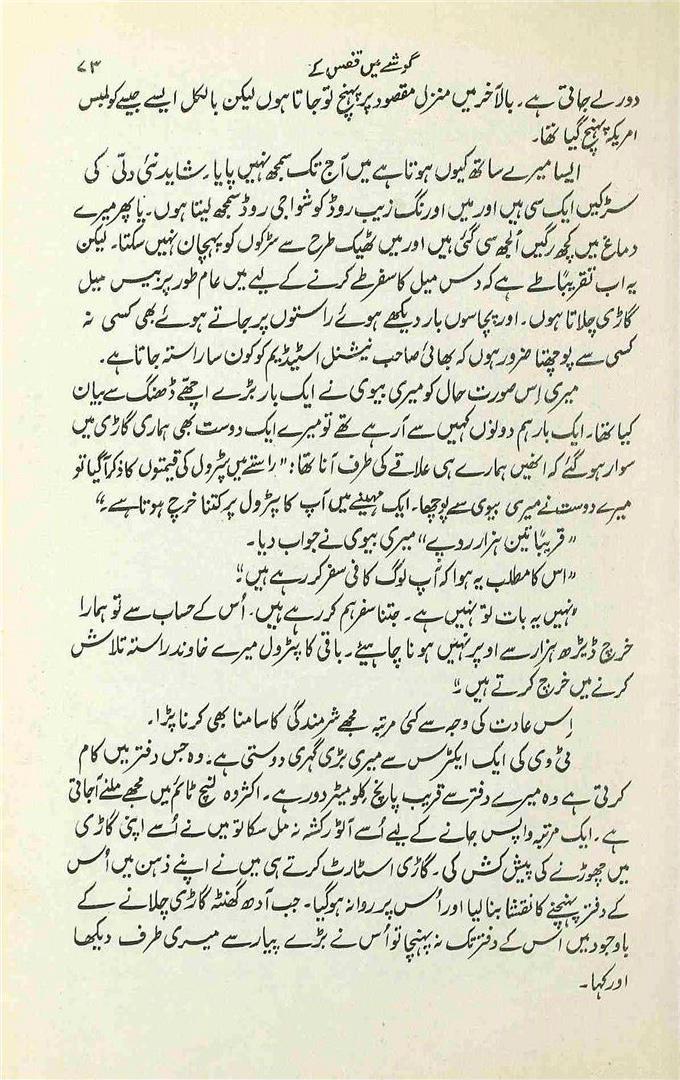 گوشے میں قفس کے
۷۳
دور لے جاتی ہے۔ بالآخر میں منزل مقصود پر پہنچ تو جاتا ہوں لیکن بالکل ایسے جیسے کولمبس
امریکہ پہنچ گیا تھا۔
ایسا میرے ساتھ کیوں ہوتا ہے میں آج تک سمجھ نہیں پایا۔ شاید نئی دلّی کی
سڑکیں ایک سی ہیں اور میں اورنگ زیب روڈ کو شواجی روڈ سمجھ لیتا ہوں۔ یا پھر میرے
دماغ میں کچھ رگیں اُلجھ سی گئی ہیں اور میں ٹھیک طرح سے سڑکوں کو پہچان نہیں سکتا۔ لیکن
یہ اب تقریباً طے ہے کہ دس میل کا سفر طے کرنے کے لیے میں عام طور پر بیس میل
گاڑی چلاتا ہوں۔ اور پچاسوں بار دیکھے ہوئے راستوں پر جاتے ہوئے بھی کسی نہ
کسی سے پوچھتا ضرور ہوں کہ بھائی صاحب نیشنل اسٹیڈیم کو کون سا راستہ جاتا ہے۔
میری اِس صورت حال کو میری بیوی نے ایک بار بڑے اچھّے ڈھنگ سے بیان
کیا تھا۔ ایک بار ہم دونوں کہیں سے آ رہے تھے تو میرے ایک دوست بھی ہماری گاڑی میں
سوار ہو گئے کہ انھیں ہمارے ہی علاقے کی طرف آنا تھا: "راستے میں پٹرول کی قیمتوں کا ذکر آگیا تو
میرے دوست نے میری بیوی سے پوچھا۔ ایک مہینے میں آپ کا پٹرول پر کتنا خرچ ہوتا ہے۔"
"قریباً تین ہزار روپے" میری بیوی نے جواب دیا۔
"اس کا مطلب یہ ہوا کہ آپ لوگ کافی سفر کر رہے ہیں۔"
"نہیں یہ بات تو نہیں ہے۔ جتنا سفر ہم کر رہے ہیں۔ اُس کے حساب سے تو ہمارا
خرچ ڈیڑھ ہزار سے اوپر نہیں ہونا چاہیئے۔ باقی کا پٹرول میرے خاوند راستہ تلاش
کرنے میں خرچ کرتے ہیں۔"
اِس عادت کی وجہ سے کئی مرتبہ مجھے شرمندگی کا سامنا بھی کرنا پڑا۔
ٹی وی کی ایک ایکٹرس سے میری بڑی گہری دوستی ہے۔ وہ جس دفتر میں کام
کرتی ہے وہ میرے دفتر سے قریب پانچ کلومیٹر دور ہے۔ اکثر وہ لنچ ٹائم میں مجھے ملنے آجاتی
ہے۔ ایک مرتبہ واپس جانے کے لیے اُسے آٹو رکشہ نہ مل سکا تو میں نے اُسے اپنی گاڑی
میں چھوڑنے کی پیش کش کی۔ گاڑی اسٹارٹ کرتے ہی میں نے اپنے ذہن میں اُس
کے دفتر پہنچنے کا نقشا بنا لیا اور اُس پر روانہ ہوگیا۔ جب آدھ گھنٹہ گاڑی چلانے کے
باوجود میں اس کے دفتر تک نہ پہنچا تو اُس نے بڑے پیار سے میری طرف دیکھا
اور کہا۔